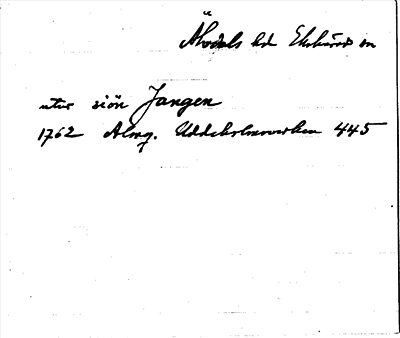 Älvdals hd Ekshärads sn
utur siön Jangen
1762 Almq. Uddeholmsverken 445